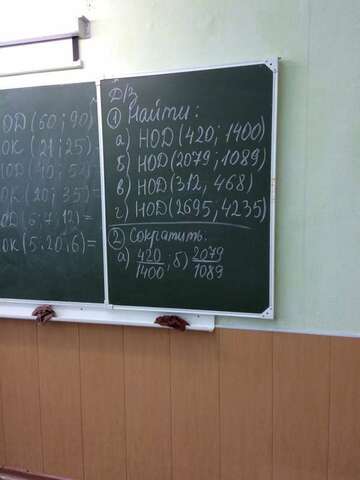 ОД(60;90)
ОК(21;25)=
ОК(20;35)=
ОД(6,7,12)=
ОК(5.20;6)=
Д/З
① Найти:
а) НОД(420;1400)
б) НОД(2079;1089)
в) НОД(312;468)
г) НОД(2695,4235)
② Сократить.
а) 420/1400; б) 2079/1089